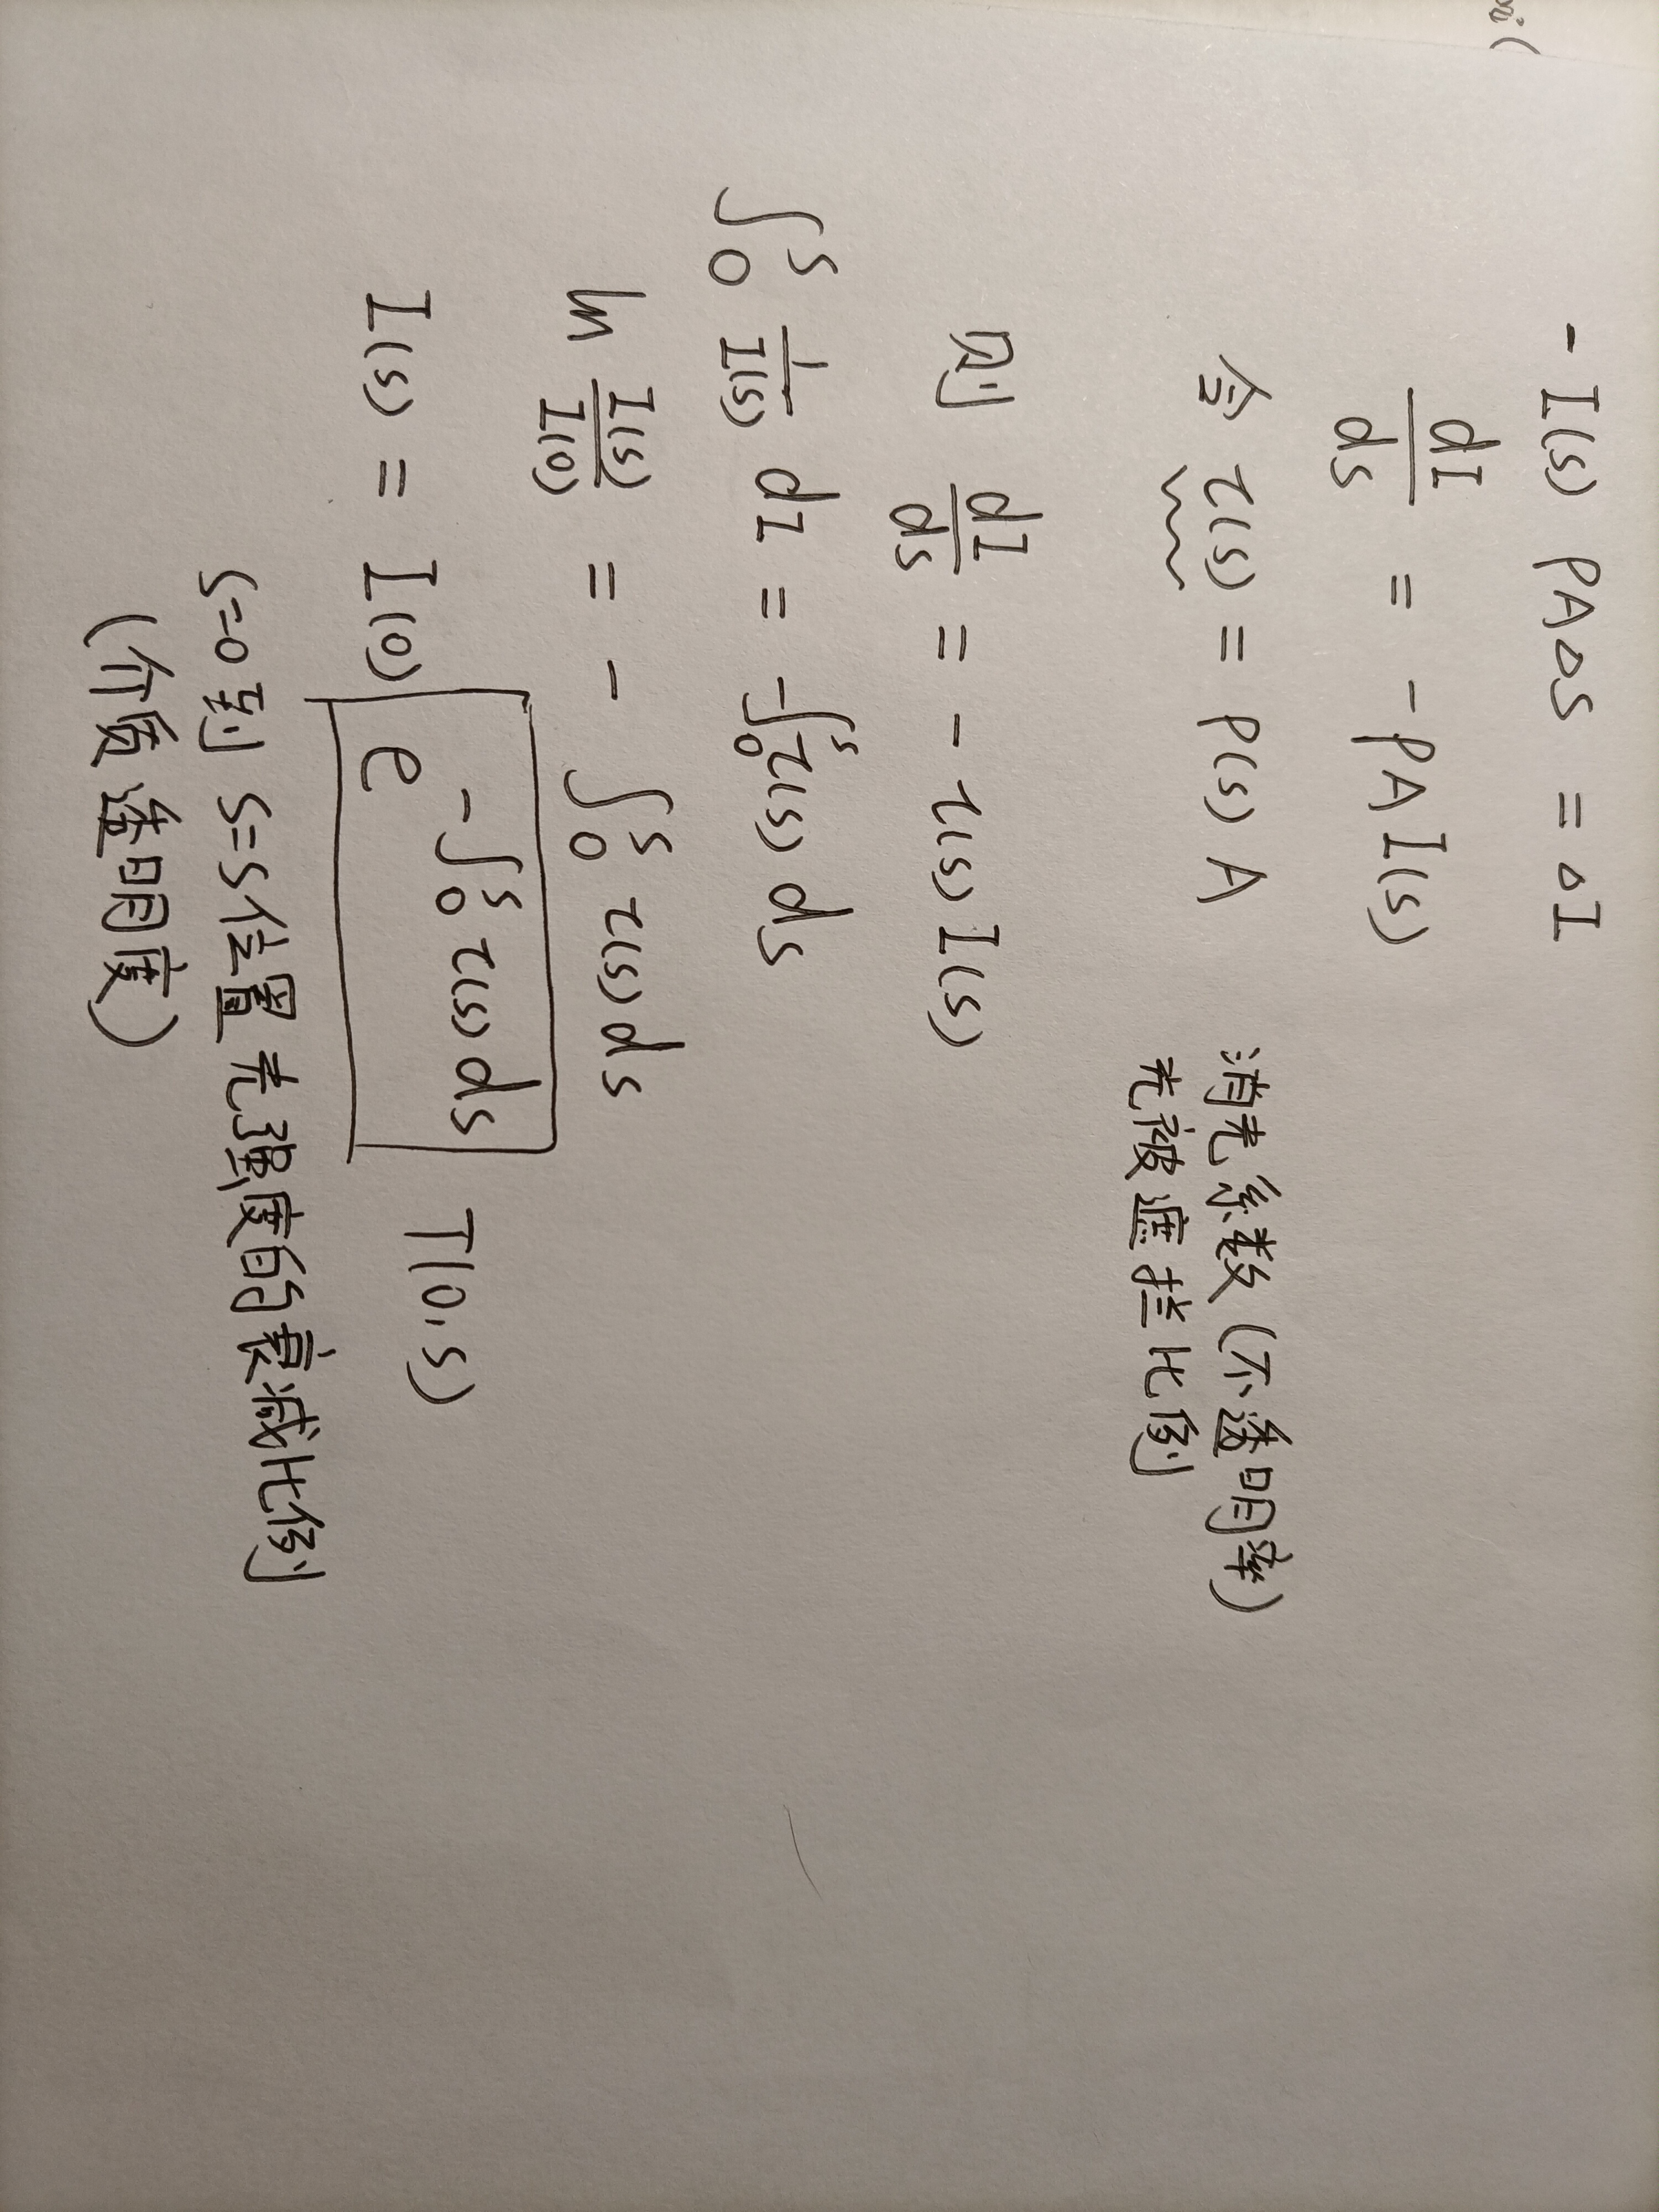 - I(s) ρAΔs = ΔI
dI/ds = -ρA I(s)
令 τ(s) = ρ(s) A 消光系数(不透明率)
光被遮拦比例
则 dI/ds = - τ(s) I(s)
∫₀ˢ 1/I(s) dI = -∫₀ˢ τ(s) ds
ln I(s)/I(0) = - ∫₀ˢ τ(s) ds
I(s) = I(0) e^(-∫₀ˢ τ(s) ds) T(0,s)
s=0 到 s=s位置 光强度的衰减比例
(介质透明度)